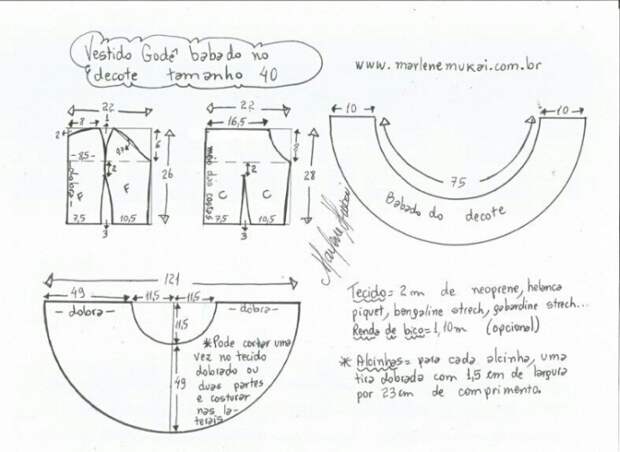 Vestido Godê babado no
decote tamanho 40
www.marlenemukai.com.br
22
8
2
85
2
6
26
dobra
F
F
7,5
10,5
3
22
16,5
8
2
28
meio das costas
C
C
7,5
10,5
3
10
10
75
Babado do decote
Marlene Mukai
121
49
11,5
11,5
- dobra -
- dobra -
11,5
49
* Pode cortar uma
vez no tecido
dobrado ou
duas partes
e costurar
nas la-
terais
Tecido = 2 m de neoprene, helanca
piquet, bengaline strech, gabardine strech...
Renda de bico = 1,10m (opcional)
* Alcinhas = para cada alcinha, uma
tira dobrada com 1,5 cm de largura
por 23 cm de comprimento.